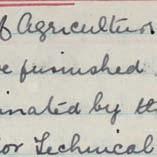 of Agricultur
furnished
inated by th
or Technical